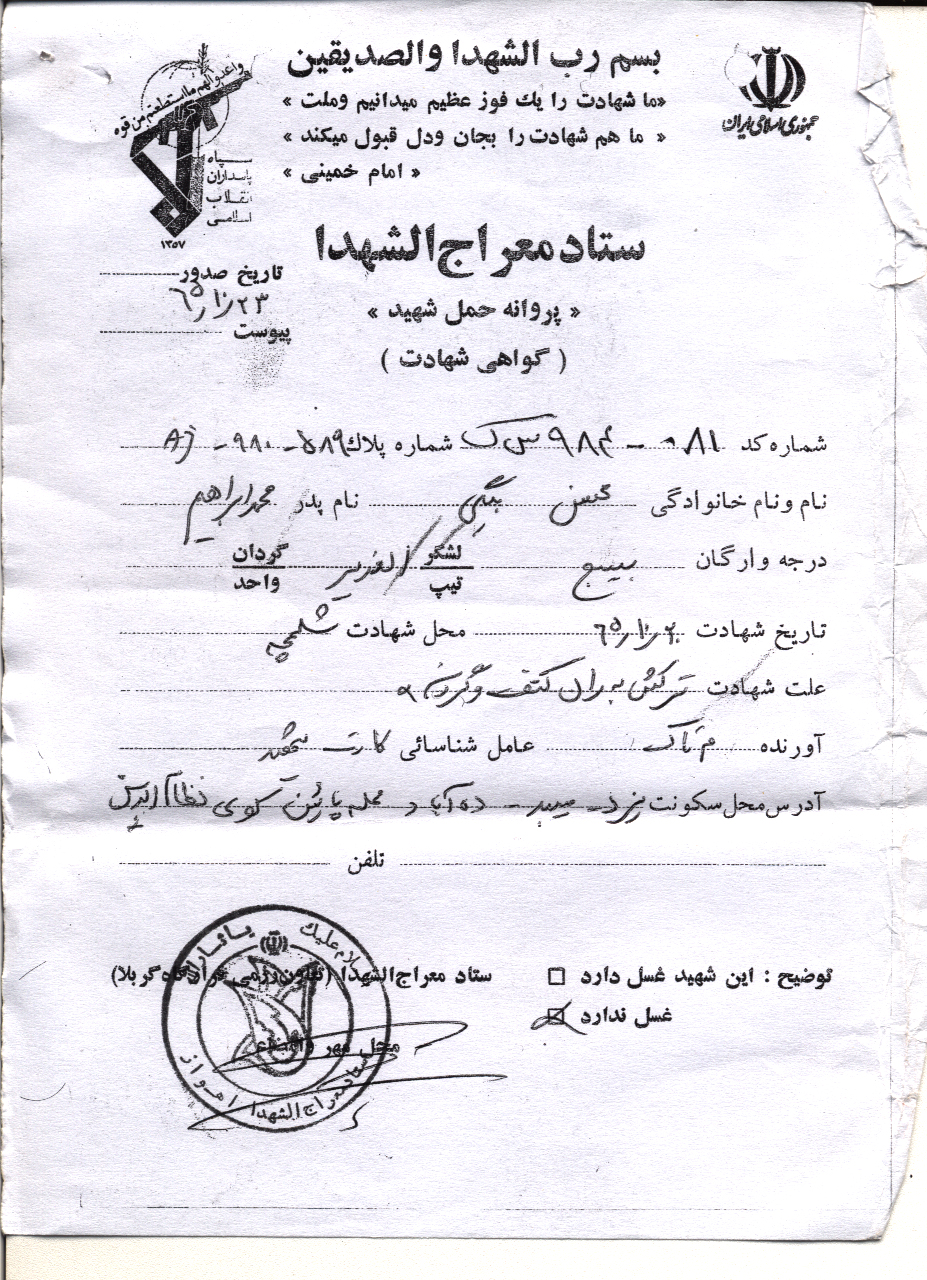 بسم رب الشهدا والصدیقین
«ما شهادت را یك فوز عظیم میدانیم وملت»
« ما هم شهادت را بجان ودل قبول میکند »
« امام خمینی »
جمهوری اسلامی ایران
واعدوا لهم ما استطعتم من قوه
سپاه
پاسداران
انقلاب
اسلامی
۱۳۵۷
ستاد معراج الشهدا
تاریخ صدور
۶۵/۱۰/۲۳
پیوست
« پروانه حمل شهید »
( گواهی شهادت )
شماره کد ۰۸۱ - ۹۸۴ س ک شماره پلاك ۵۸۹ - ۹۸۰ - AJ
نام ونام خانوادگی بیگی نام پدر محمدابراهیم
درجه وارگان بسیج لشگر / تیپ الغدیر گردان / واحد
تاریخ شهادت ۶۵/۱۰/۲۰ محل شهادت شلمچه
علت شهادت ترکش به ران کتف و گردن
آورنده عامل شناسائی کارت
آدرس محل سکونت یزد - میبد - ده آباد محله پائین کوی
تلفن
توضیح : این شهید غسل دارد □ ستاد معراج الشهدا (تعاون رزمی قرارگاه کربلا)
غسل ندارد ☒
محل مهر وامضاء
سلام علیك
یا ثارا...
ستاد معراج الشهدا اهواز